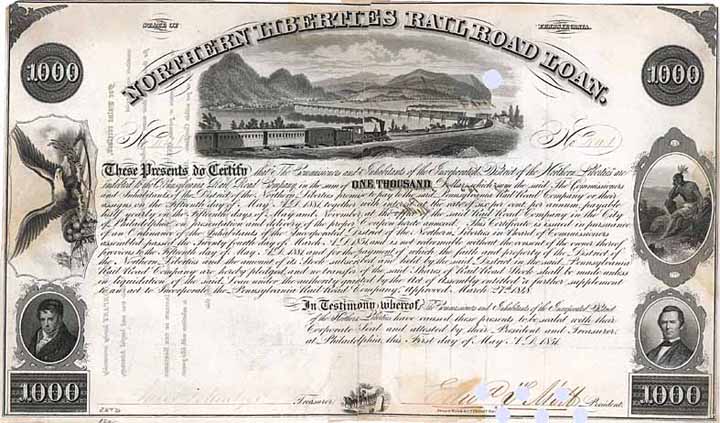 STATE OF PENNSYLVANIA.
NORTHERN LIBERTIES RAIL ROAD LOAN.
1000 1000
No No
These Presents do Certify that The Commissioners and Inhabitants of the Incorporated District of the Northern Liberties are
indebted to the Pennsylvania Rail Road Company in the sum of ONE THOUSAND Dollars, which sum the said The Commissioners
and Inhabitants of the District of the Northern Liberties promise to pay to the Pennsylvania Rail Road Company or their
assigns on the Fifteenth day of May A.D. 1881, together with interest at the rate of six per cent per annum, payable
half yearly on the fifteenth days of May and November, at the of the said Rail Road Company in the City
of Philadelphia, on presentation and delivery of the proper Coupon hereto annexed. This Certificate is issued in pursuance
of an Ordinance of the Incorporated District of the Northern Liberties in Board of Commissioners
assembled passed the Twenty fourth day of March A.D. 1851, and is not redeemable without the consent of the owner thereof
previous to the Fifteenth day of May A.D. 1881, and for the payment of which the faith and property of the District of
the Northern Liberties and the amount of its Stock subscribed and held by the said District in the said Pennsylvania
Rail Road Company are hereby pledged, and no transfer of the said Shares of Rail Road Stock shall be made unless
in liquidation of the said Loan under the authority granted by the Act of Assembly entitled "a further supplement
to an act to Incorporate the Pennsylvania Rail Road Company," Approved, March 27th 1848.
In Testimony whereof, The Commissioners and Inhabitants of the Incorporated District
of the Northern Liberties have caused these presents to be sealed with their
Corporate Seal and attested by their President and Treasurer,
at Philadelphia, this First day of May A.D. 1851.
Treasurer President.
1000 1000